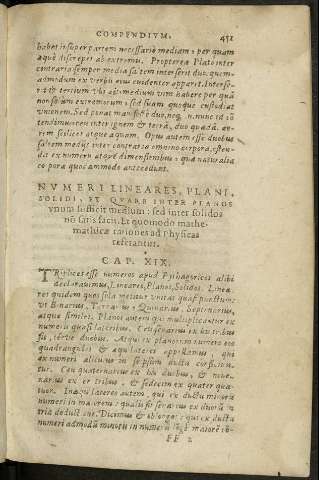 COMPENDIVM. 452
habet insuper partem necessariò mediam: per quam
æquè discrepet ab extremis. Propterea Plato inter
contraria semper media saltem interserit duo. quem-
admodum ex verbis eius euidenter apparet. Interse-
rit tertium vbi
nor solùm extremorum, sed suam quoque custodiat
vnionem. Sed putat manifestè duo, neq, nunc id
tendimus ceu inter ignem & terrã, duo quædã, aë-
rem scilicet atque aquam. Opus autem esse duobus
saltem medijs inter contraria omnino corpora, osten-
dit ex numeri atque dimensionibus: qua naturalia
corpora quoq́ modo antecedunt.
NVMERI LINEARES, PLANI,
SOLIDI, ET QVARE INTER PLANOS
vnum sufficit medium: sed inter solidos
nõ satis facit. Et quomodo mathe-
maticæ rationes ad Physicas
referantur.
CAP. XIX.
TRiplices esse numeros apud Pythagoricos alibi
declarauimus, Lineares, Planos, Solidos. Linea-
res quidem quos sola metitur vnitas quasi punctum:
vt Binarius, Ternarius, Quinarius, Septenarius,
atque similes. Planos autem qui multiplicantur ex
numeris quasi lateribus. Ceu senarius ex bis tribus
fit, térve duobus. Atqui ex planorum numero eos
quadrangulos & æquilateros appellamus, qui
ex numeri alicuius in seipsum ductu conficiun-
tur. Ceu quaternarius ex bis duobus, & noue-
narius ex ter tribus, & sedecim ex quater qua-
tuor. Inæquilateros autem, qui ex ductu minoris
numeri in maiorem: qualis fit senarius ex duorũ in
tria deductione. Dicimus & oblongos: qui ex ductu
numeri admodũ minoris in numerũ longè maiorẽ cõ-
FF 2